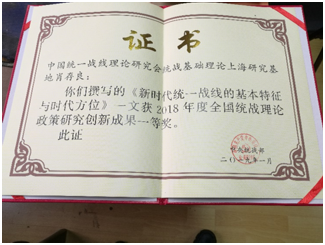 证书
中国统一战线理论研究会统战基础理论上海研究基
地肖存良：
你们撰写的《新时代统一战线的基本特征
与时代方位》一文获2018年度全国统战理论
政策研究创新成果一等奖。
此证
中央统战部
二〇一九年一月